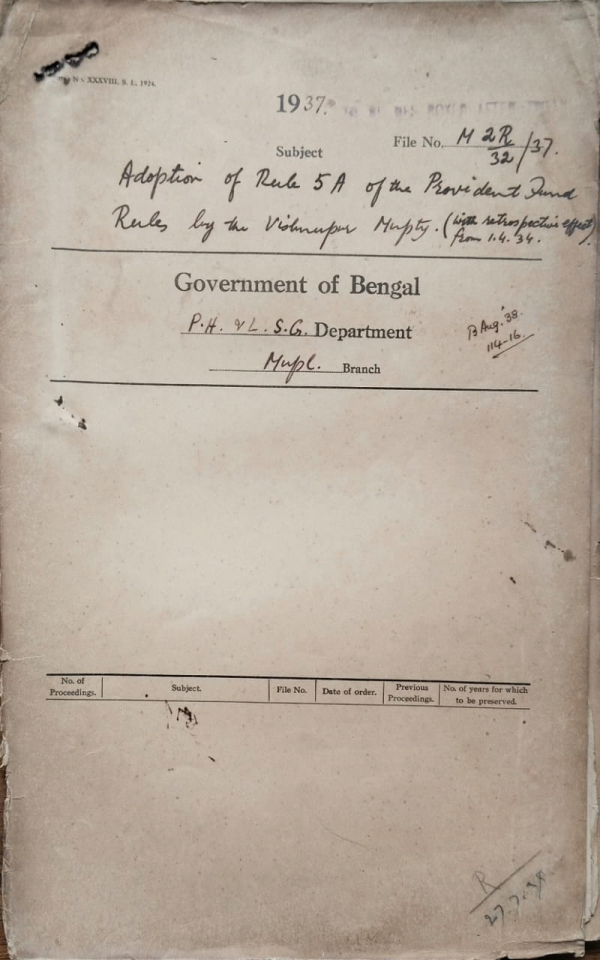 No. XXXVIII. S. L. 1924.
1937.
File No. M 2R/32/37.
Subject
Adoption of Rule 5A of the Provident Fund
Rules by the Vishnupur Mupty. (with retrospective effect
from 1.4.'34.)
Government of Bengal
P.H. & L.S.G. Department
B Aug. '38.
114-16.
Mupl. Branch
No. of Proceedings. Subject. File No. Date of order. Previous Proceedings. No. of years for which to be preserved.
R
27.7.38